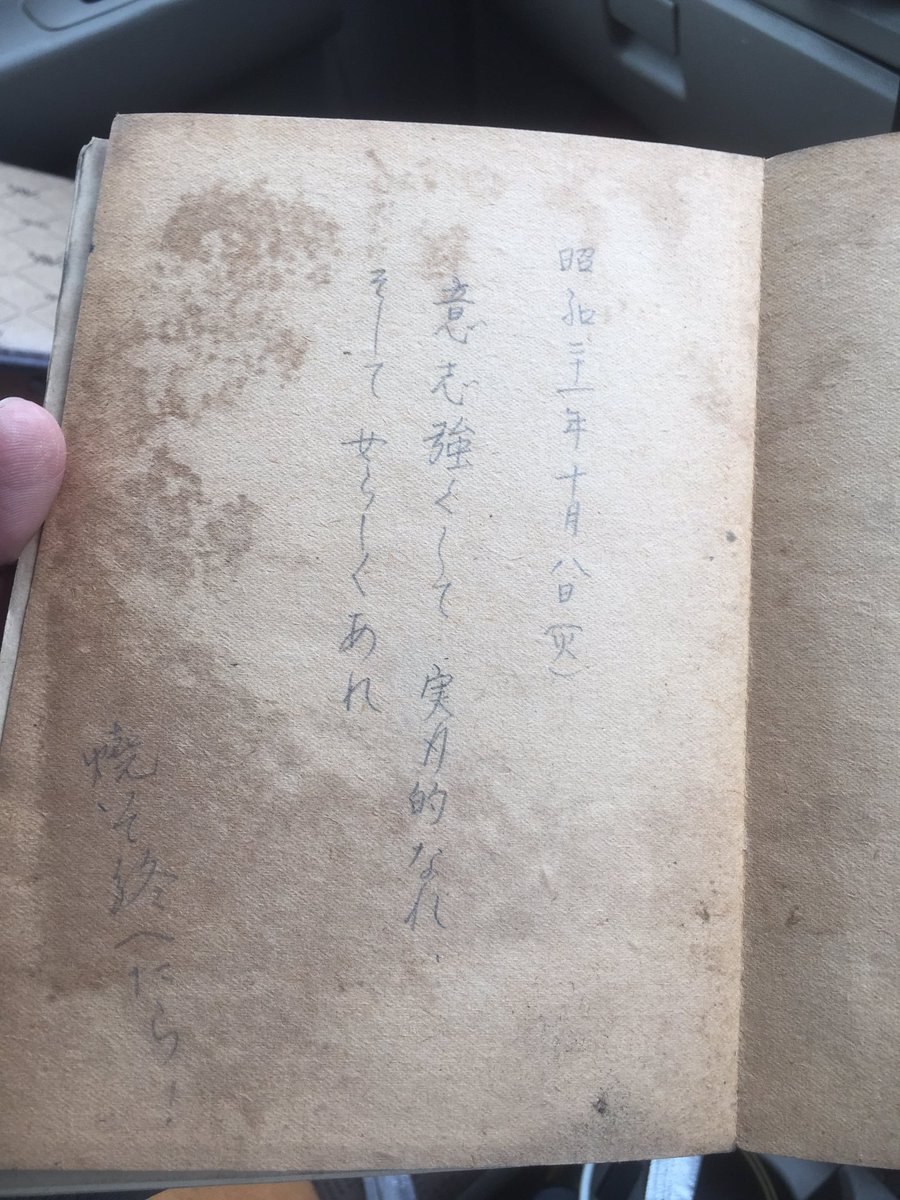 昭和二十一年十月八日(火)
意志強くして 実用的なれ.
そして女らしくあれ
終へたら!